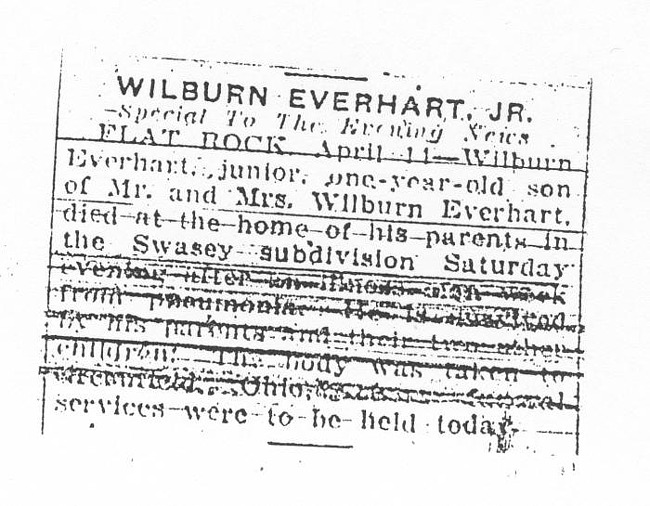 WILBURN EVERHART, JR.
-Special To The Evening News
FLAT ROCK, April 11—Wilburn
Everhart, junior, one-year-old son
of Mr. and Mrs. Wilburn Everhart,
died at the home of his parents in
the Swasey subdivision Saturday
evening after an illness of a week
from pneumonia. He is survived
by his parents and their two other
children. The body was taken to
Greenfield, Ohio, where funeral
services were to be held today.